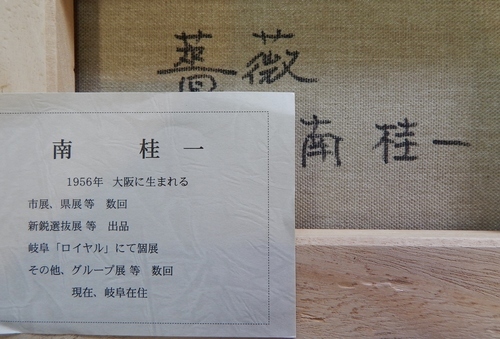 薔薇
南 桂一
南 桂 一
1956年 大阪に生まれる
市展、県展等 数回
新鋭選抜展等 出品
岐阜「ロイヤル」にて個展
その他、グループ展等 数回
現在、岐阜在住